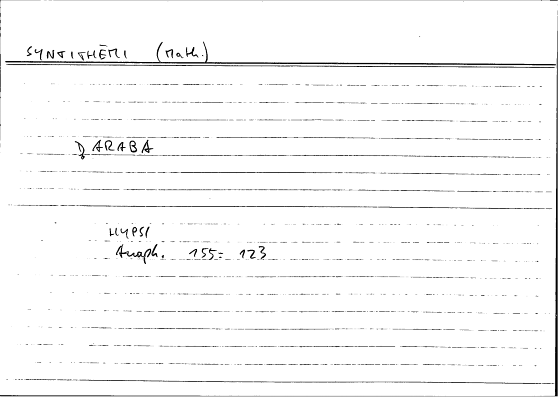 SYNTITHĒMI (Math.)
ḌARABA
HYPSI
Anaph. 155 = 123